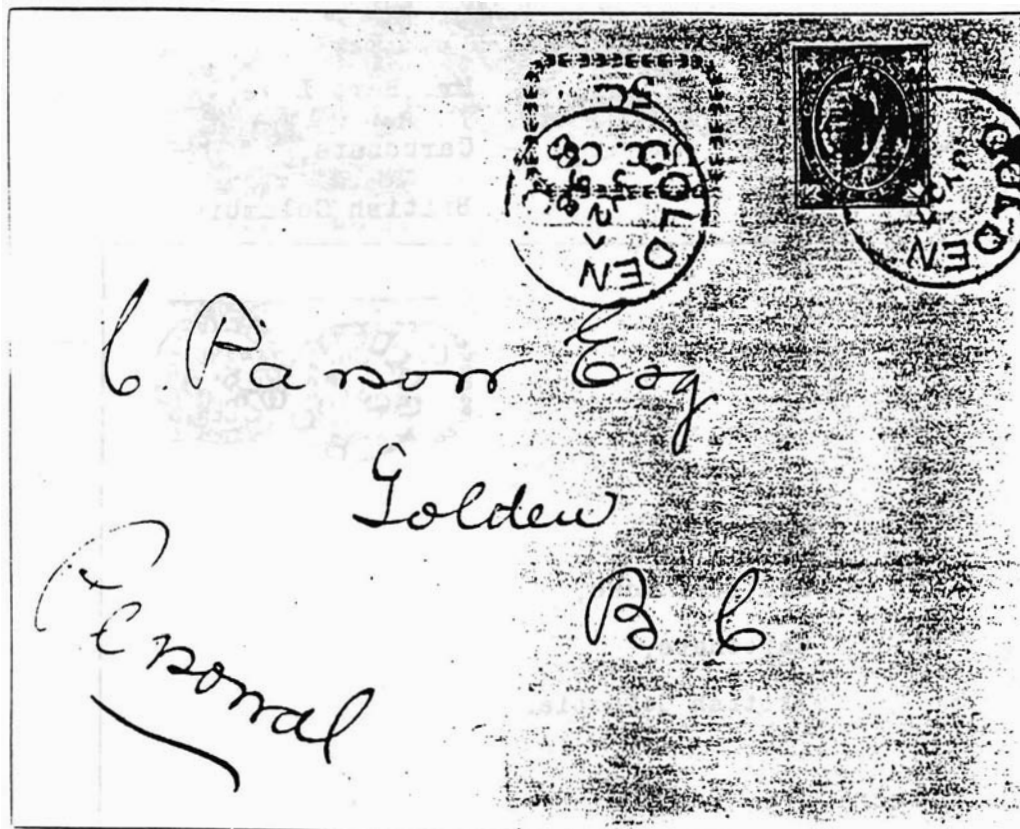 GOLDEN
GOLDEN
C. Parson Esq
Golden
B C
Personal